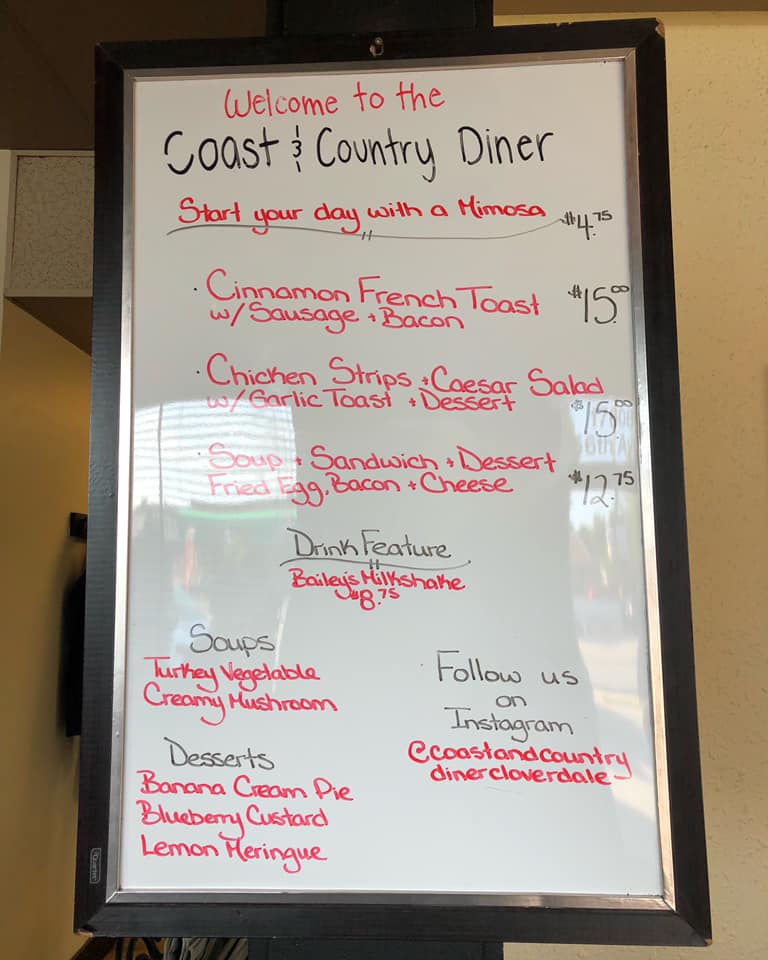 Welcome to the
Coast & Country Diner
Start your day with a Mimosa $4.75
· Cinnamon French Toast $15.00
w/ Sausage + Bacon
· Chicken Strips + Caesar Salad
w/ Garlic Toast + Dessert $15.00
· Soup + Sandwich + Dessert
Fried Egg, Bacon + Cheese $12.75
Drink Feature
Bailey's Milkshake
$8.75
Soups
Turkey Vegetable
Creamy Mushroom
Desserts
Banana Cream Pie
Blueberry Custard
Lemon Meringue
Follow us
on
Instagram
@coastandcountry
dinercloverdale